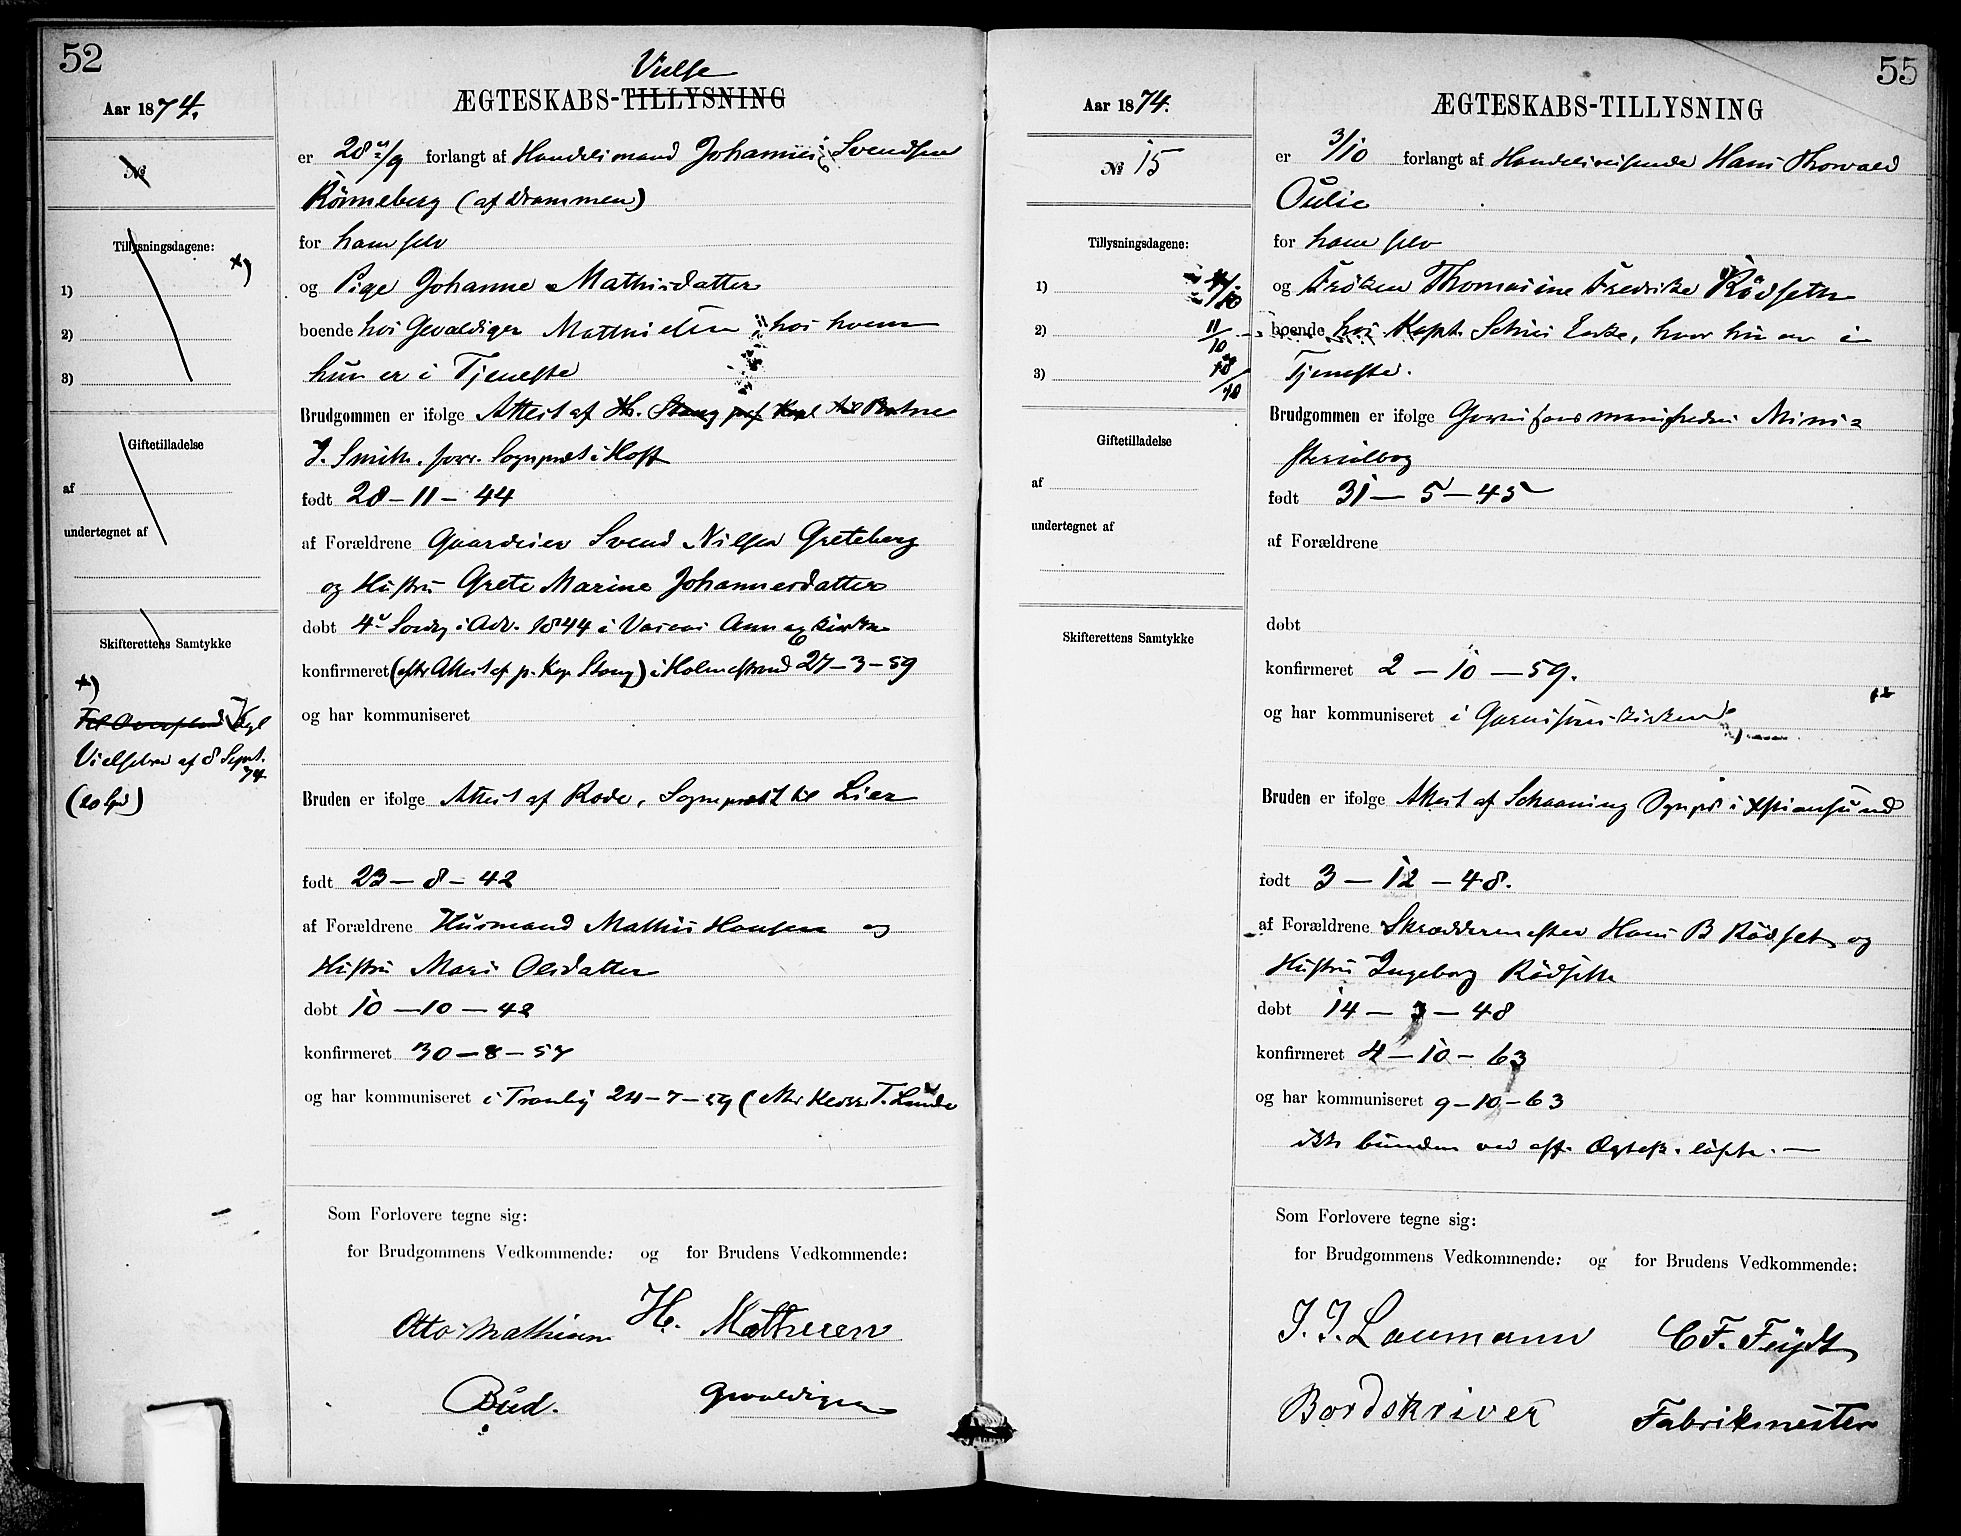 52
Aar 1874.
№
Tillysningsdagene:
1)
2)
3)
Giftetilladelse
af
undertegnet af
Skifterettens Samtykke
Kgl
Vielsebrev af 8 Sept.
74
Vielse
ÆGTESKABS-TILLYSNING
er 28/9 forlangt af Handelsmand Johannes Svendsen
Rönneberg (af Drammen)
for ham selv
og Pige Johanne Mathisdatter
boende hos Gevaldiger Mathiesen, hos hvem
hun er i Tjeneste
Brudgommen er ifølge Attest af
J. Smith, Sognepræst i Hoff
født 28 - 11 - 44
af Forældrene Gaardeier Svend Nilsen Greteberg
og Hustru Grete Marine Johannesdatter
døbt 4 Sönd. i Adv. 1844 i
konfirmeret (efter Attest af p. Kap. Stang) i Holmestrand 27-3-59
og har kommuniseret
Bruden er ifølge Attest af Rode, Sognepræst til Lier
født 23 - 8 - 42
af Forældrene Husmand Mathis Hansen og
Hustru Mari Olsdatter
døbt 10 - 10 - 42
konfirmeret 30 - 8 - 57
og har kommuniseret i Tranby 24-7-59
Som Forlovere tegne sig:
for Brudgommens Vedkommende: og for Brudens Vedkommende:
Otto Mathisen H. Mathiesen
Bud. Gevaldiger
55
Aar 1874.
№ 15
Tillysningsdagene:
1) 4/10
2) 11/10
3) 18/10
Giftetilladelse
af
undertegnet af
Skifterettens Samtykke
ÆGTESKABS-TILLYSNING
er 3/10 forlangt af Handelsreisende Hans Thorvald
Oulie
for ham selv
og Fröken Thomasine Fredrikke Rödseth
boende hos Kapt. Enke, hvor hun er i
Tjeneste.
Brudgommen er ifølge Garnisonsmenighedens Mini-
sterialbog
født 31 - 5 - 45
af Forældrene
døbt
konfirmeret 2 - 10 - 59.
og har kommuniseret i Garnisonskirken
Bruden er ifølge Attest af Schaaning Sognpr i Xstiansund
født 3 - 12 - 48.
af Forældrene Skræddermester Hans B Rödset og
Hustru Ingeborg Rödseth
døbt 14 - 3 - 48
konfirmeret 4 - 10 - 63
og har kommuniseret 9-10-63
ikke bunden ved eft. Ægtesk. löfte. —
Som Forlovere tegne sig:
for Brudgommens Vedkommende: og for Brudens Vedkommende:
J. J. Laumann C F. Feydt
Bordskriver Fabrikmester